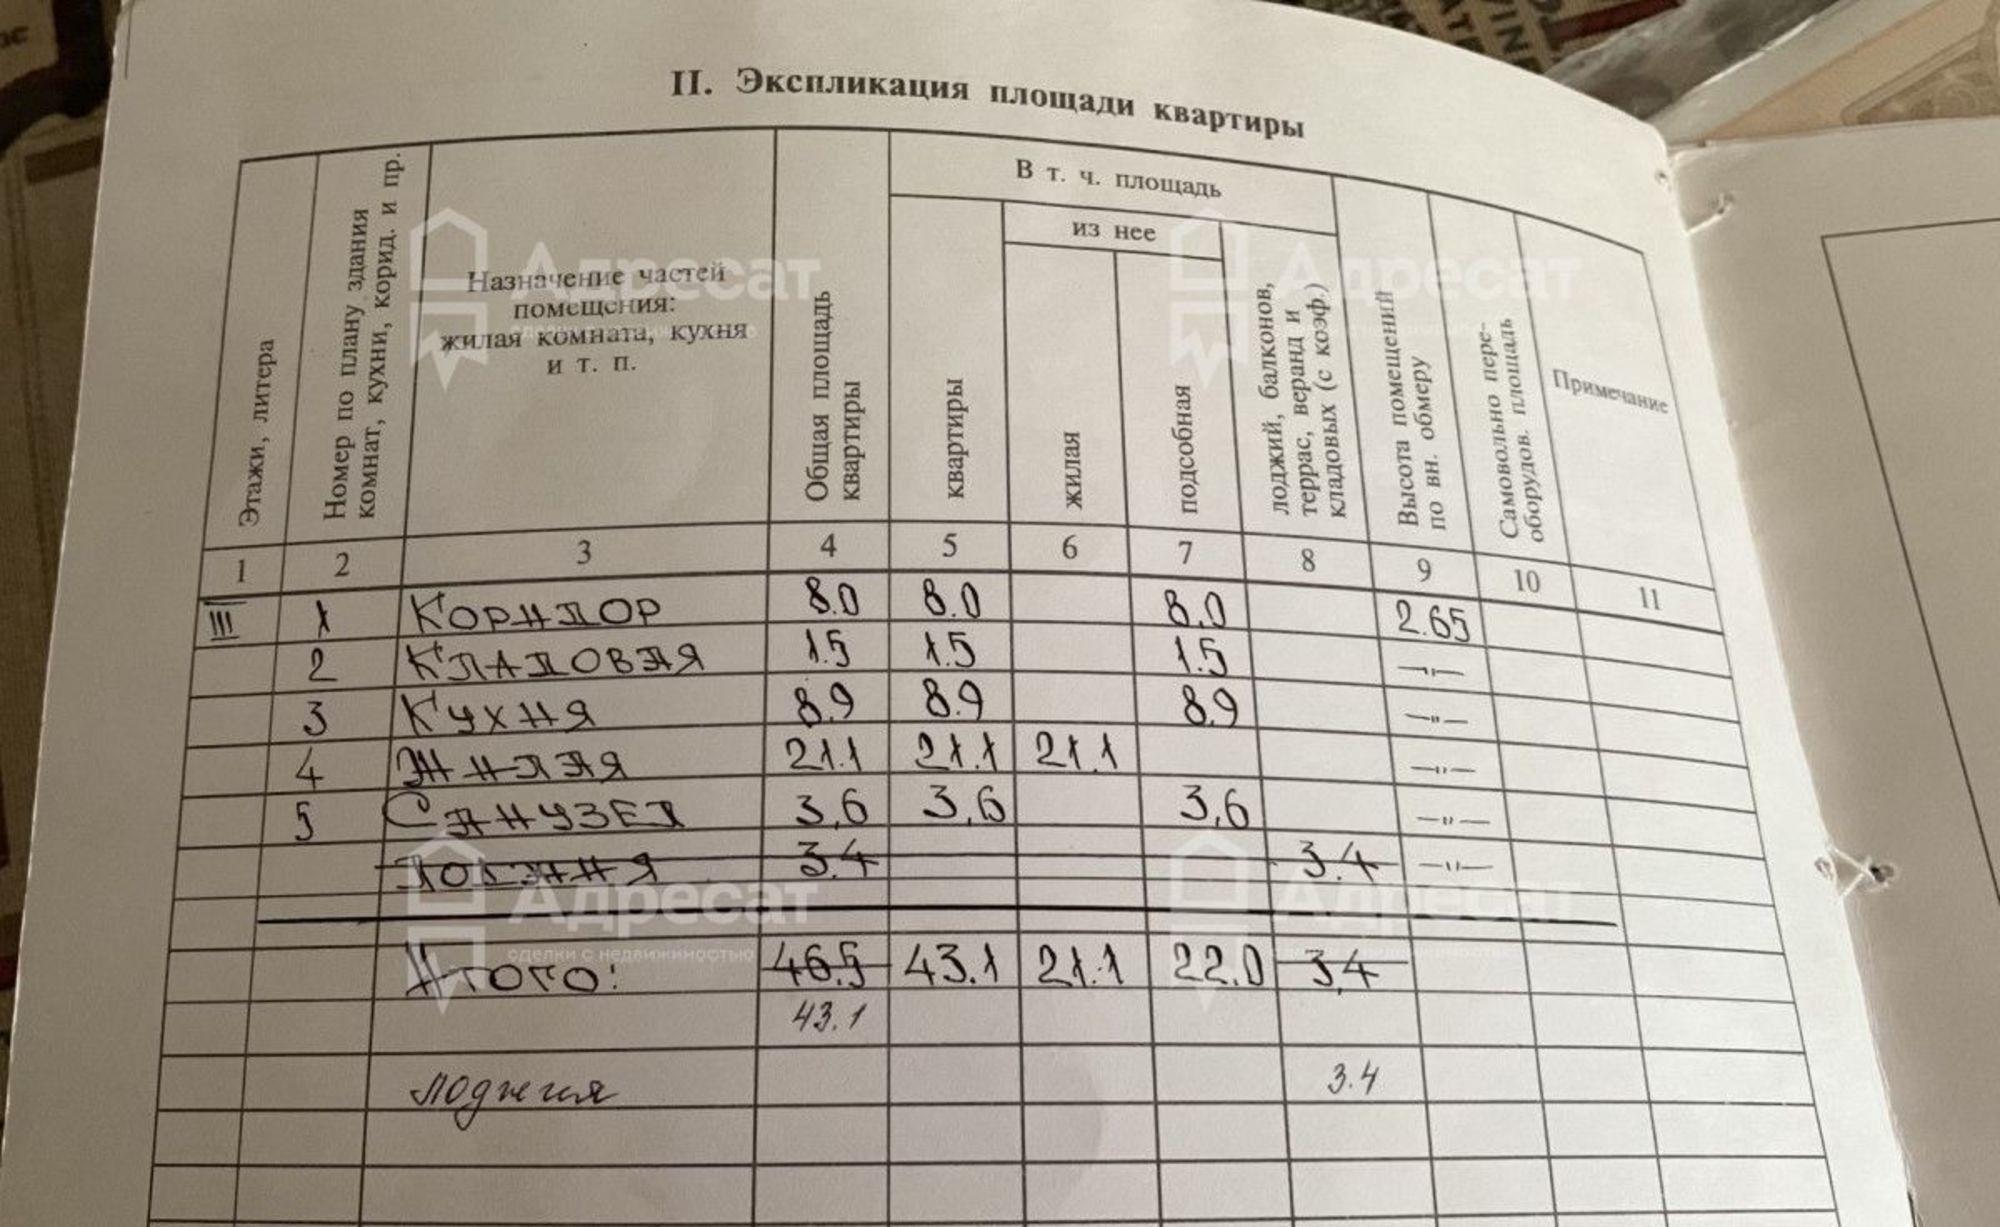 II. Экспликация площади квартиры
Этажи, литера
Номер по плану здания
комнат, кухни, корид. и пр.
Назначение частей
помещения:
жилая комната, кухня
и т. п.
Общая площадь
квартиры
В т. ч. площадь
квартиры
из нее
жилая
подсобная
лоджий, балконов,
террас, веранд и
кладовых (с коэф.)
Высота помещений
по вн. обмеру
Самовольно пере-
оборудов. площадь
Примечание
1 2 3 4 5 6 7 8 9 10 11
III 1 Коридор 8.0 8.0 8.0 2.65
2 Кладовая 1.5 1.5 1.5 —"—
3 Кухня 8.9 8.9 8.9 —"—
4 Жилая 21.1 21.1 21.1 —"—
5 Санузел 3,6 3,6 3,6 —"—
Лоджия 3.4 3.4 —"—
Итого: 46.5 43.1 21.1 22.0 3,4
43.1
лоджия 3.4
Адресат
Адресат
Адресат
сделки с недвижимостью
Адресат